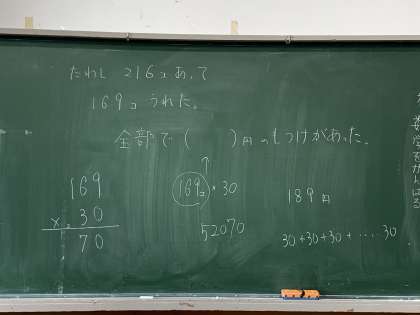 たわし 216コあって
169コうれた。
全部で( )円のもうけがあった。
169
× 30
70
169コ × 30
52070
189円
30+30+30+…30